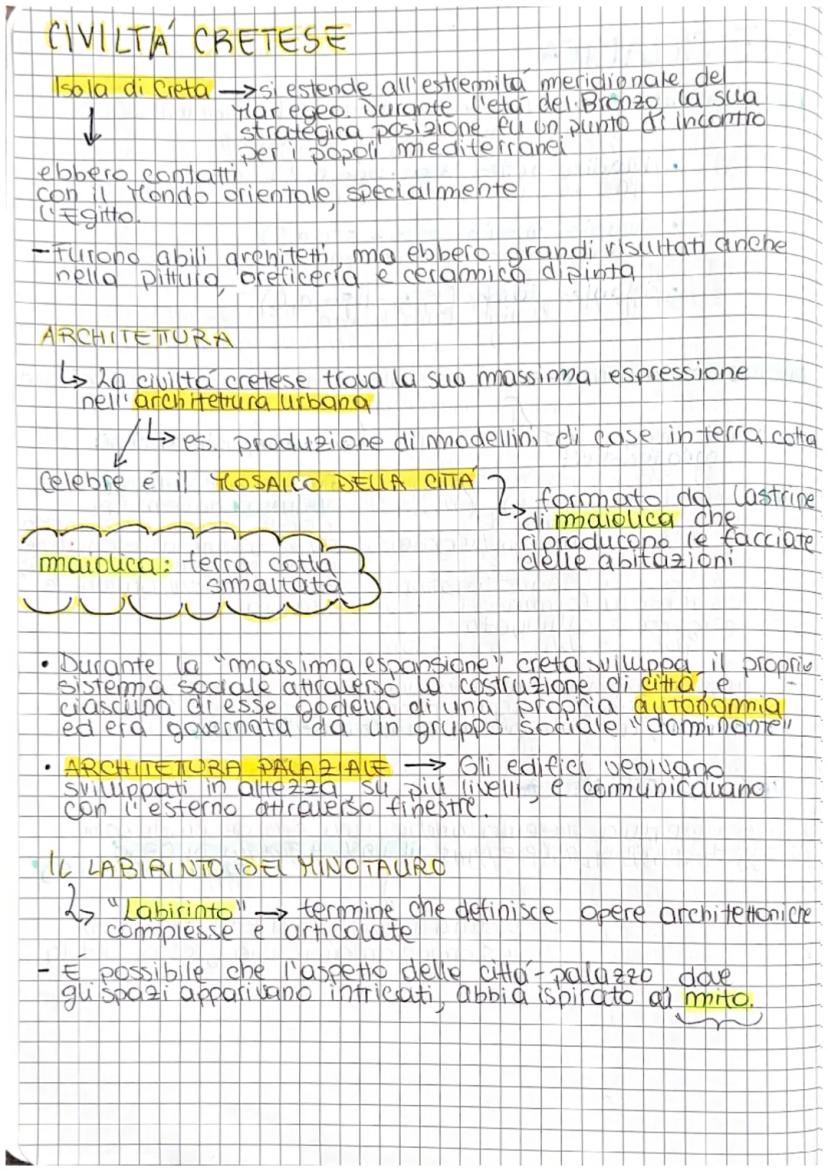 CIVILTÁ CRETESE
Isola di Creta → si estende all'estremitá meridionale del
Mar egeo. Durante l'etá del Bronzo, la sua
strategica posizione fu un punto di incontro
per i popoli mediterranei
ebbero contatti
con il Mondo orientale, specialmente
l'Egitto.
- Furono abili architetti, ma ebbero grandi risultati anche
nella pittura, oreficeria e ceramica dipinta
ARCHITETTURA
↳ La civiltá cretese trova la sua massima espressione
nell'architettura urbana
↳ es. produzione di modellini di case in terra cotta
Celebre é il MOSAICO DELLA CITTÁ
↳ formato da lastrine
di maiolica che
riproducono le facciate
delle abitazioni
maiolica: terra cotta
smaltata
• Durante la "massima espansione" creta sviluppa il proprio
sistema sociale attraverso la costruzione di cittá, e
ciascuna di esse godeva di una propria autonomia
ed era governata da un gruppo sociale "dominante"
• ARCHITETTURA PALAZIALE → Gli edifici venivano
sviluppati in altezza su piú livelli, e comunicavano
con l'esterno attraverso finestre.
IL LABIRINTO DEL MINOTAURO
↳ "Labirinto" → termine che definisce opere architettoniche
complesse e articolate
- É possibile che l'aspetto delle cittá-palazzo dove
gli spazi apparivano intricati, abbia ispirato al mito.